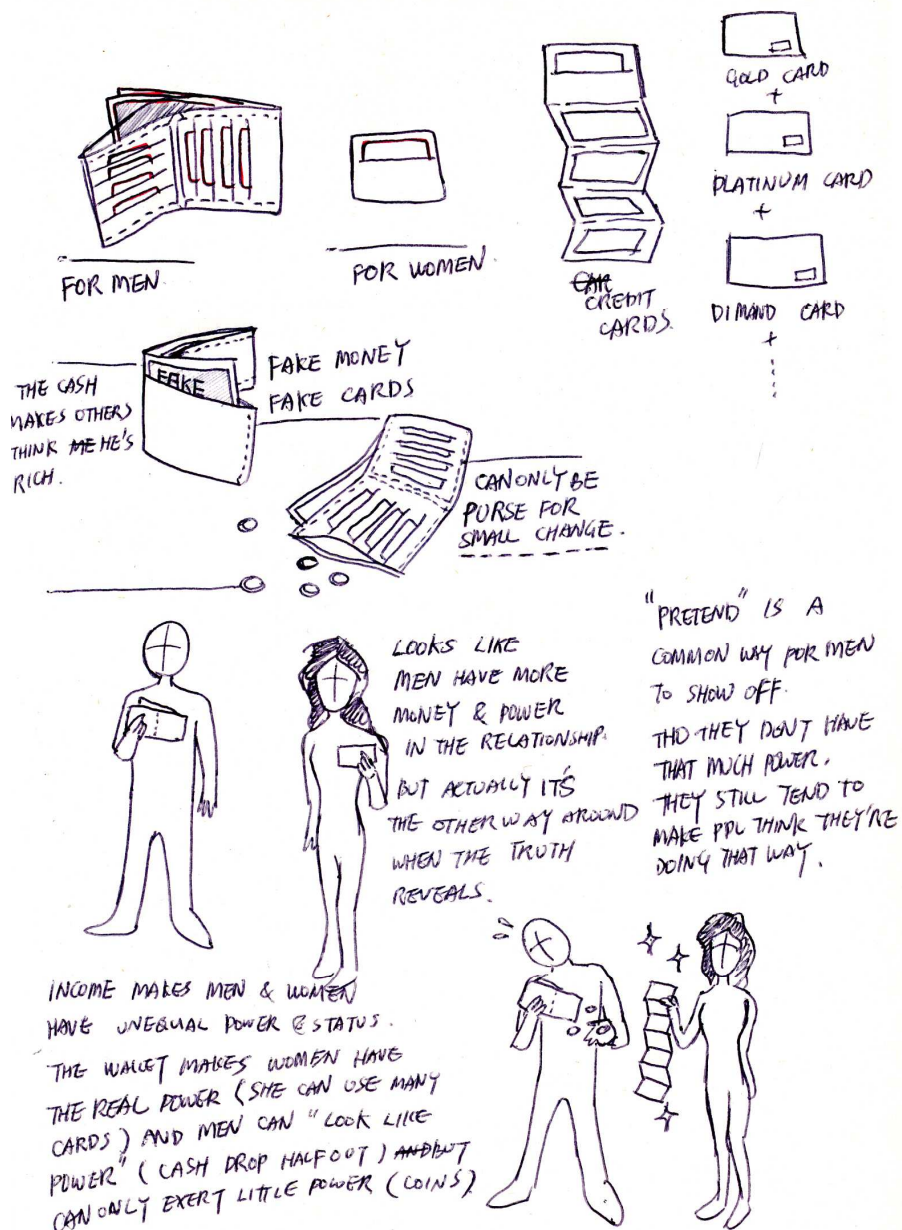 FOR MEN.
FOR WOMEN.
CREDIT
CARDS.
GOLD CARD
+
PLATINUM CARD
+
DIMAND CARD
+
THE CASH
MAKES OTHERS
THINK ME HE'S
RICH.
FAKE
FAKE MONEY
FAKE CARDS
CAN ONLY BE
PURSE FOR
SMALL CHANGE.
LOOKS LIKE
MEN HAVE MORE
MONEY & POWER
IN THE RELATIONSHIP.
BUT ACTUALLY IT'S
THE OTHER WAY AROUND
WHEN THE TRUTH
REVEALS.
"PRETEND" IS A
COMMON WAY FOR MEN
TO SHOW OFF.
THO THEY DON'T HAVE
THAT MUCH POWER.
THEY STILL TEND TO
MAKE PPL THINK THEY'RE
DOING THAT WAY.
INCOME MAKES MEN & WOMEN
HAVE UNEQUAL POWER & STATUS.
THE WALLET MAKES WOMEN HAVE
THE REAL POWER (SHE CAN USE MANY
CARDS) AND MEN CAN "LOOK LIKE
POWER" (CASH DROP HALF OUT) AND BUT
CAN ONLY EXERT LITTLE POWER (COINS)